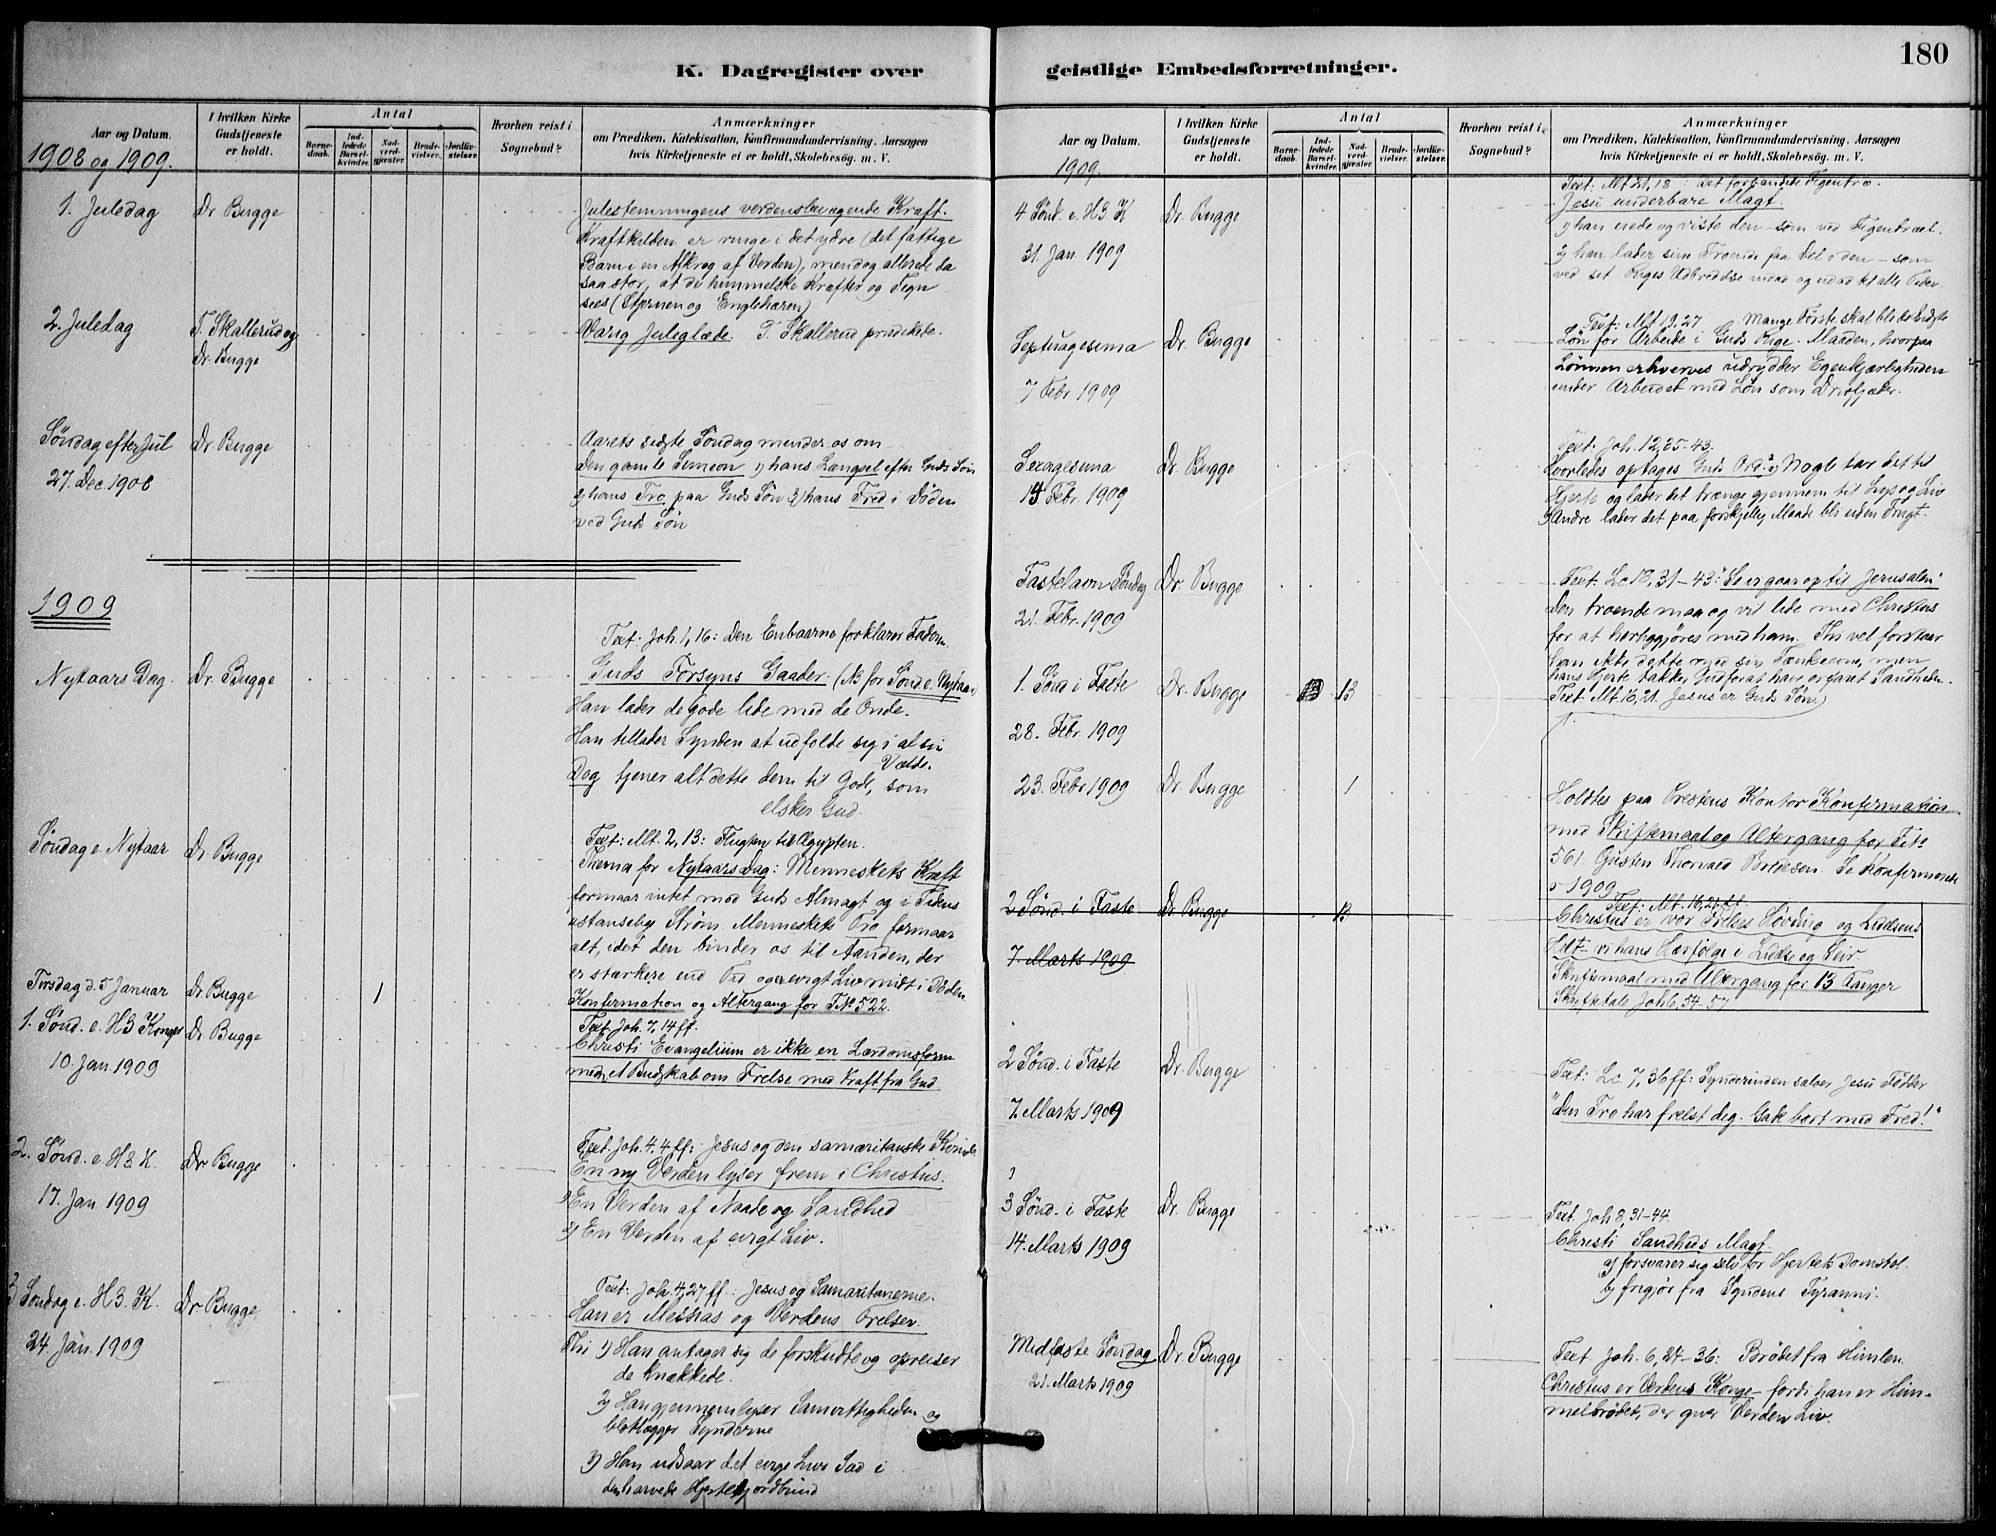 K. Dagregister over
Aar og Datum.
I hvilken Kirke
Gudstjeneste
er holdt.
Antal
Barne-
daab.
Ind-
ledede
Barsel-
kvinder.
Nad-
verd-
gjester.
Brude-
vielser.
Jordfæ-
stelser.
Hvorhen reist i
Sognebud?
Anmærkninger
om Prædiken, Katekisation, Konfirmandundervisning, Aarsagen
hvis Kirketjeneste ei er holdt, Skolebesøg. m. V.
1908 og 1909.
1. Juledag
Dr Bugge
Julestemningens verdensbevægende Kraft.
Kraftkilden er ringe i det ydre (det fattige
Barn i en Afkrog af Verden), men dog allerede da
saa stor, at de himmelske Kræfter og Tegn
sees (Stjernen og Englehæren)
2. Juledag
T. Skallerud og
Dr. Bugge
Varig Juleglæde. T. Skallerud prædikede.
Søndag efter Jul
27. Dec 1908
Dr. Bugge
Aarets sidste Søndag minder os om
Den gamle Simeon 1) hans Længsel efter Guds Søn
2) hans Tro paa Guds Søn 3) hans Fred i Døden
ved Guds Søn
1909
Nytaars Dag.
Dr. Bugge
Text: Joh. 1,16: Den Enbaarne forklarer Faderen
Guds Forsyns Gaader. (NB for Sønd e. Nytaar)
Han lader de gode lide med de Onde.
Han tillader Synden at udfolde sig i al sin
Vælde.
Dog tjener alt dette dem til Gode, som
elsker Gud.
Søndag e. Nytaar
Dr Bugge
Text: Mt. 2,13: Flugten til Ægypten.
Thema for Nytaarsdag: Menneskets Kraft
formaar intet mod Guds Almagt og i Tidens
ustanselig Strøm. Menneskets Tro formaar
alt, idet den binder os til Aanden, der
er stærkere end Tid og er evigt Liv midt i Døden.
Tirsdag d. 5 Januar
Dr Bugge
1
Konfirmation og Altergang for F No 522.
1. Sønd. e. H3 Konger
10. Jan. 1909
Dr Bugge
Text Joh. 7,14 ff.
Christi Evangelium er ikke en Lærdomsform
men et Budskab om Frelse med Kraft fra Gud
2. Sønd. e. H3. K.
17. Jan. 1909
Dr Bugge
Text Joh. 4.4 ff: Jesus og den samaritanske Kvinde
En ny Verden lyser frem i Christus.
1) En Verden af Naade og Sandhed
2) En Verden af evigt Liv.
3 Søndag e. H3. K.
24. Jan. 1909
Dr Bugge
Text: Joh. 4,27 ff.: Jesus og Samaritanerne.
Han er Messias og Verdens Frelser.
Thi 1) Han antager sig de forskudte og opreiser
de knækkede.
2) Han gjennemlyser Samvittigheden og
blotlægger Synderne
3) Han udsaar det evige Livs Sæd i
den harvede Hjertejordbund
geistlige Embedsforretninger.
180
Aar og Datum.
I hvilken Kirke
Gudstjeneste
er holdt.
Antal
Barne-
daab.
Ind-
ledede
Barsel-
kvinder.
Nad-
verd-
gjester.
Brude-
vielser.
Jordfæ-
stelser.
Hvorhen reist i
Sognebud?
Anmærkninger
om Prædiken, Katekisation, Konfirmandundervisning, Aarsagen
hvis Kirketjeneste ei er holdt, Skolebesøg. m. V.
1909.
4 Sønd. e. H3. K
31. Jan. 1909
Dr. Bugge
Text: Mt 21,18 Det forbandede Figentræ.
Jesu underbare Magt.
1) han eiede og viste den – som ved Figentræet.
2) han lader sine Troende faa Del i den – som
ved sit Riges Udbredelse indad og udad til alle Tider.
Septuagesima
7 Febr 1909
Dr. Bugge
Text: Mt 19.27 Mange Første skal blive sidste
Løn for Arbeide i Guds Rige. Maaden, hvorpaa
Lønnen erhverves udrydder Egenkjærligheden
under Arbeidet med Løn som Drivfjæder.
Sexagesima
14 Febr. 1909
Dr. Bugge
Text: Joh. 12,35-43.
Hvorledes optages Guds Ord? 1) Nogle tar det til
Hjerte og lader det trænge gjennem til Lys og Liv
2) Andre lader det paa forskjellig Maade bli uden Frugt.
Fastelavn Søndag
21. Febr. 1909
Dr. Bugge
Text: Lc 18,31-43: "Se vi gaar op til Jerusalem"
Den troende maa og vil lide med Christus
for at herliggjøres med ham. Thi vel forstaar
han ikke dette med sin Tankeevne, men
hans Hjerte takker Gud for at have erfaret Sandheden.
1. Sønd i Faste
28. Febr. 1909
Dr. Bugge
13
Text: Mt. 16,21. Jesus er Guds Søn.)
23. Febr 1909
Dr. Bugge
1
Holdtes paa Prestens Kontor Konfirmation
med Skriftemaal og Altergang for F No
561. Gusten Thorvald Boldesen. Se Konfirmerede
1909
2 Sønd. i Faste
7 Marts 1909
Dr Bugge
Text: Mt. 16,21 ff.
Christus er vor Troes Høvding og Lidelsens
Helt – vi hans Hærfølge i Lidelse og Seir
Skriftemaal med Altergang for 13 Fanger
Skriftetale Joh 6,54-57
2 Sønd. i Faste
7. Marts 1909
Dr. Bugge
Text: Lc. 7,36 ff: Synderinden salver Jesu Fødder
"Din Tro har frelst dig. Gak bort med Fred!"
3 Sønd. i Faste
14. Marts 1909
Dr. Bugge
Text. Joh 8,31-44.
Christi Sandheds Magt
a) forsvarer sig selv for Hjertets Domstol.
b) frigjør fra Syndens Tyranni.
Midfaste Søndag
21. Marts 1909
Dr. Bugge
Text Joh. 6,24-36: Brødet fra Himlen.
Christus er Verdens Konge – fordi han er Him-
melbrødet, der giver Verden Liv.